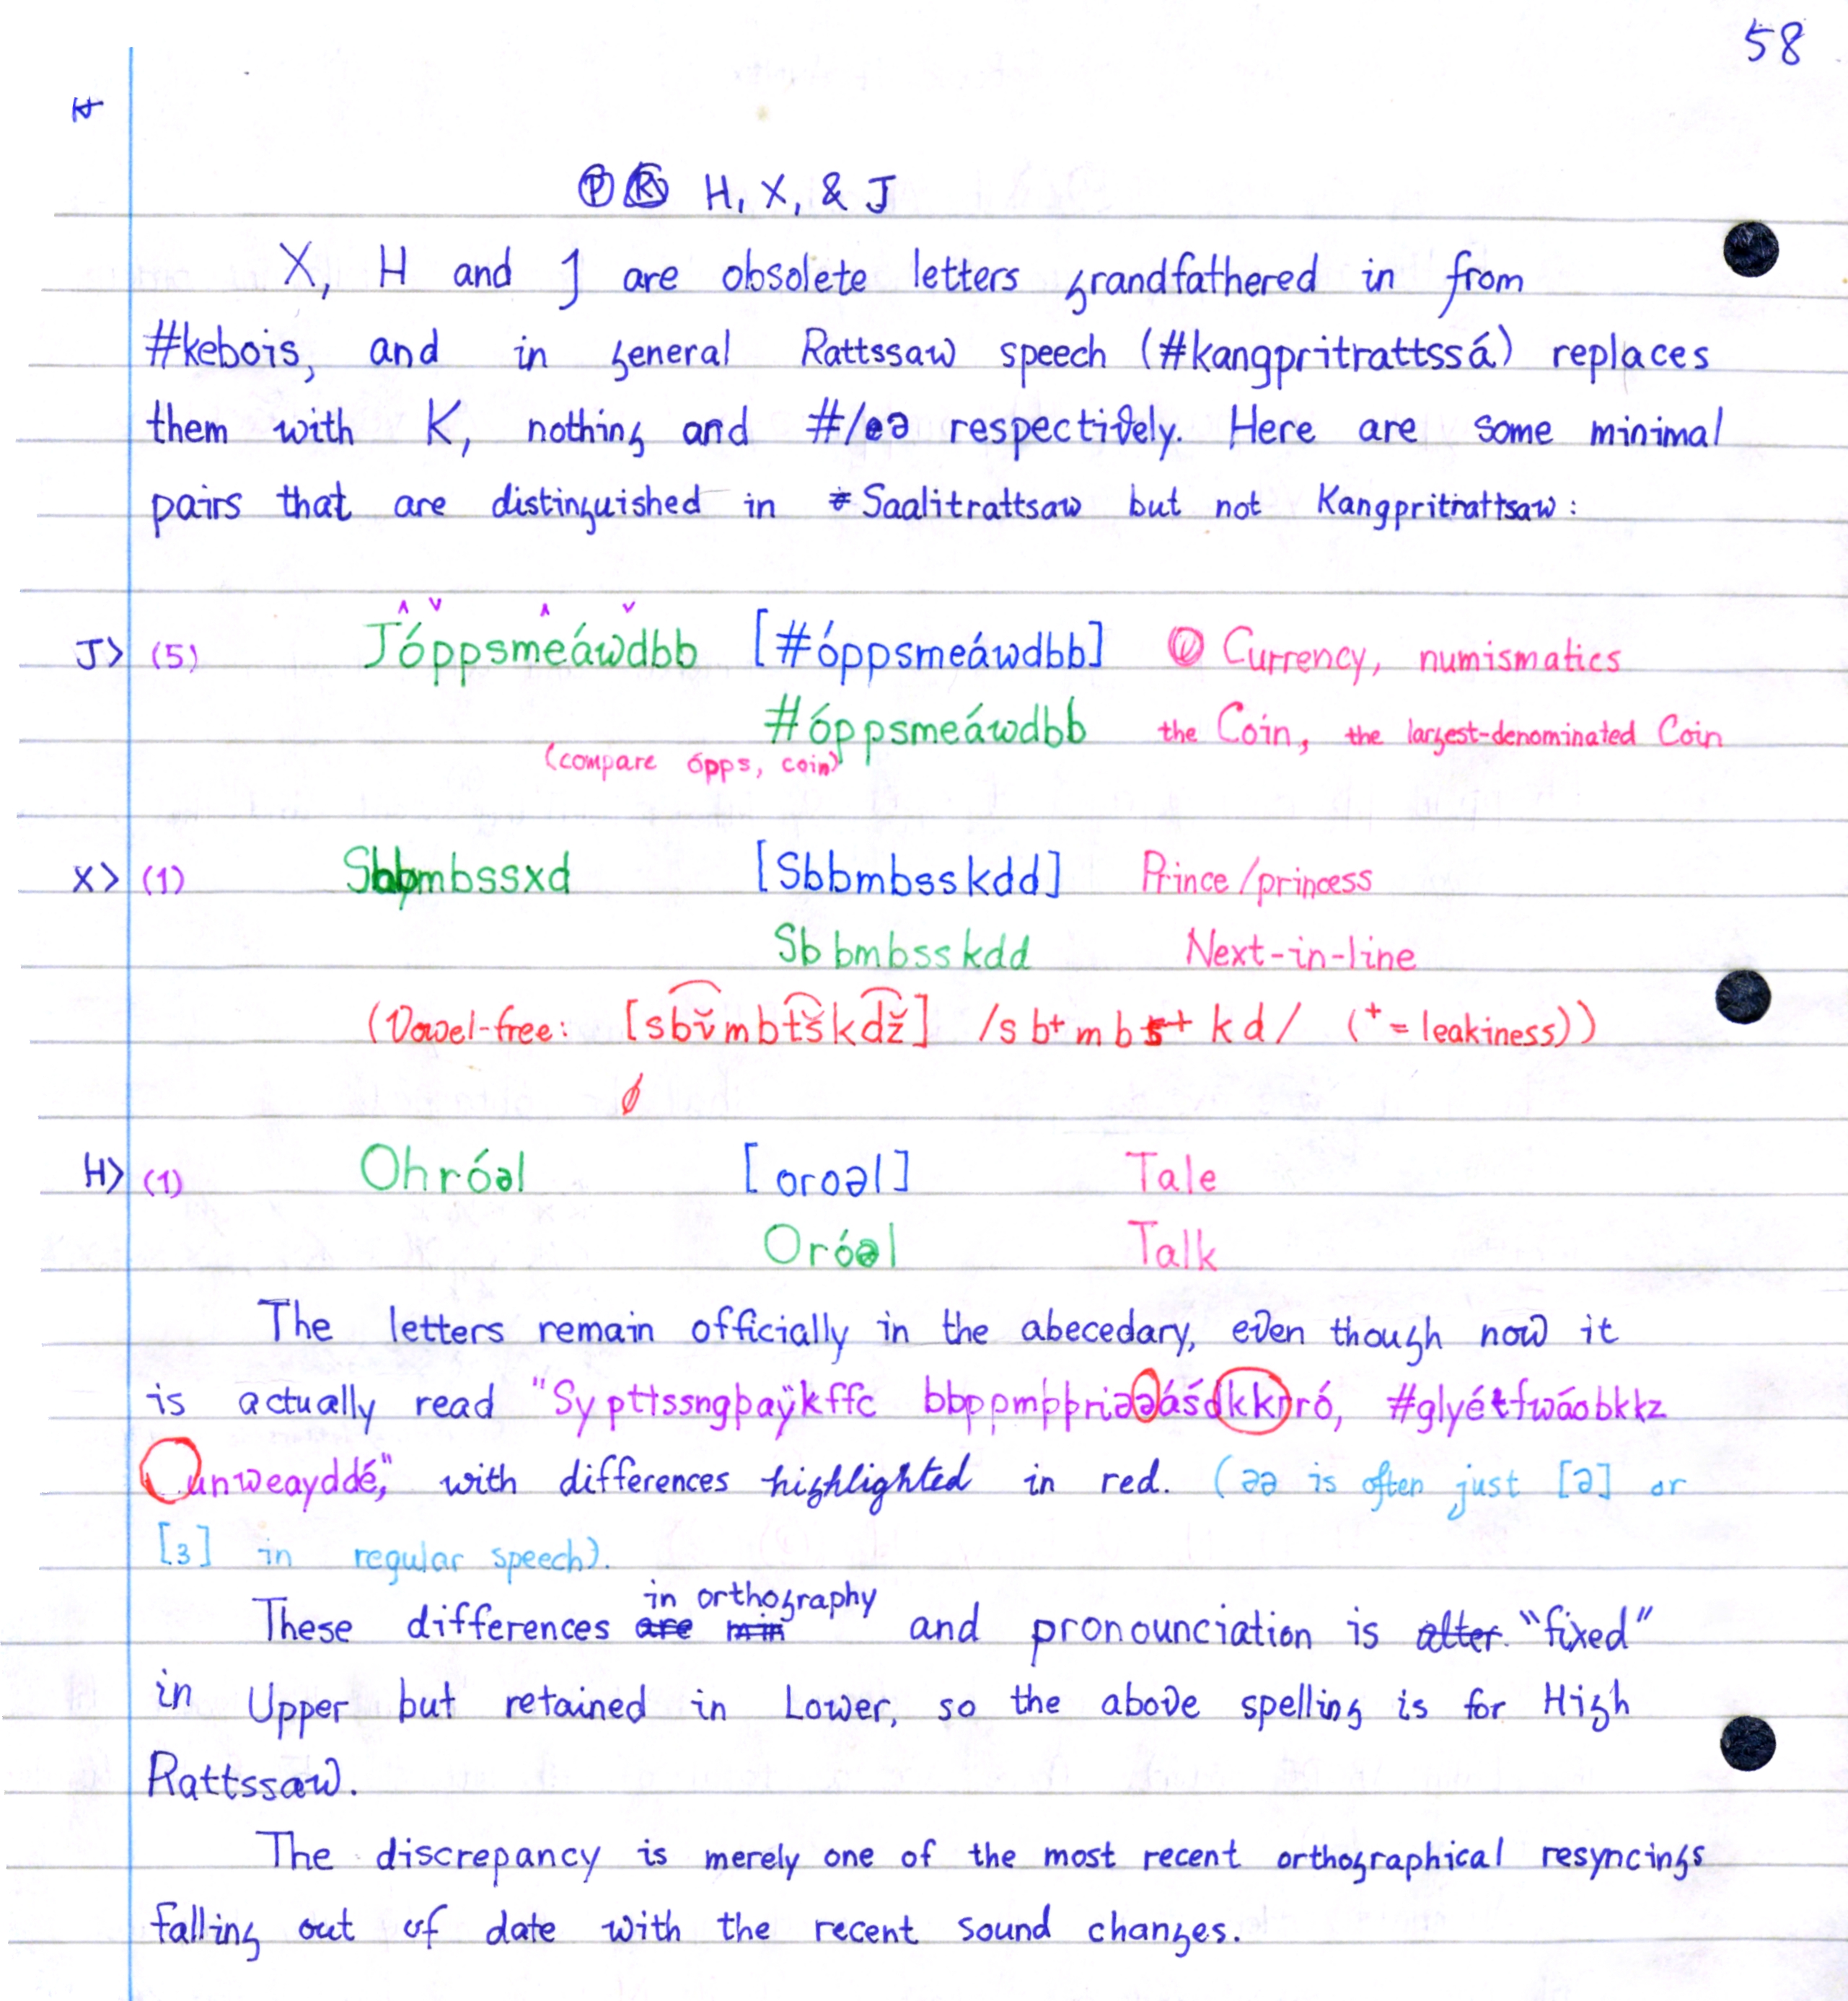 58
Ⓟ Ⓡ H, X, & J
X, H and J are obsolete letters grandfathered in from
#kebois, and in general Rattssaw speech (#kangpritrattssá) replaces
them with K, nothing and #/eə respectively. Here are some minimal
pairs that are distinguished in #Saalitrattsaw but not Kangpritrattsaw:
J> (5) Jóppsmeáwdbb [#óppsmeáwdbb] Currency, numismatics
#óppsmeáwdbb the Coin, the largest-denominated Coin
(compare ópps, coin)
X> (1) Sbbmbssxd [Sbbmbsskdd] Prince/princess
Sbbmbsskdd Next-in-line
(Vowel-free: [sbv̌mbtškdž] /sb+mbs+kd/ (+ = leakiness))
H> (1) Ohróəl [oroəl] Tale
Oróəl Talk
The letters remain officially in the abecedary, even though now it
is actually read "Sypttssngþaÿkffc bbppmþþriəəášdkkrró, #glyétfwáobkkz
unweayddé," with differences highlighted in red. (əə is often just [ə] or
[3] in regular speech).
These differences are in orthography and pronounciation is "fixed"
in Upper but retained in Lower, so the above spelling is for High
Rattssaw.
The discrepancy is merely one of the most recent orthographical resyncings
falling out of date with the recent sound changes.